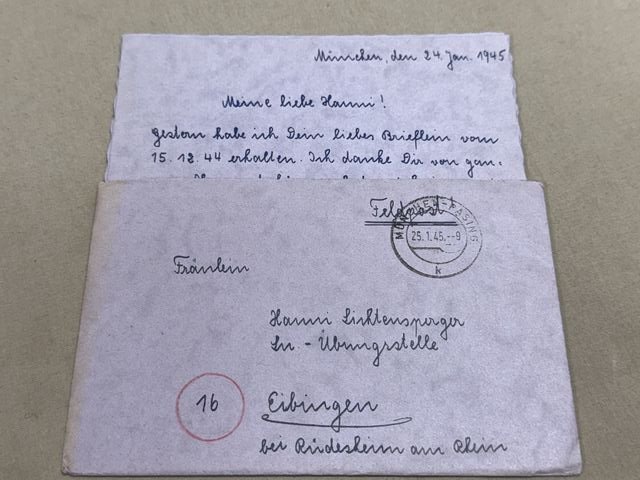 München, den 24. Jan. 1945
Meine liebe Hanni!
gestern habe ich Dein liebes Brieflein vom
15.12.44 erhalten. Ich danke Dir von gan-
Feldpost
MÜNCHEN-PASING
25.1.45.--9
k
Fräulein
Hanni Lichtensperger
Ln.-Übungsstelle
16
Eibingen
bei Rüdesheim am Rhein